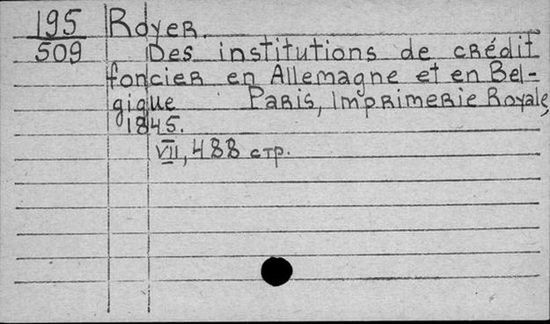 195 Royer.
509 Des institutions de crédit
foncier en Allemagne et en Bel-
gique Paris, Imprimerie Royale,
1845.
VII, 488 стр.